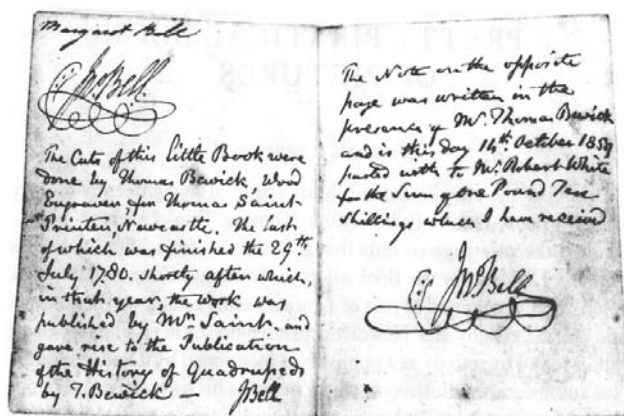 Margaret Bell
Jno Bell.
The Cuts of this Little Book were
done by Thomas Bewick, Wood
Engraver, for Thomas Saint
Printer, Newcastle. The last
of which was finished the 29th
July 1780. Shortly after which,
in that year, the work was
published by Mr. Saint. and
gave rise to the Publication
of the History of Quadrupeds
by T. Bewick —
JBell
The Note on the opposite
page was written in the
presence of Mr. Thomas Bewick
and is this day 14th October 1859
parted with to Mr. Robert White
for the Sum of one Pound Ten
Shillings which I have received
Jno Bell